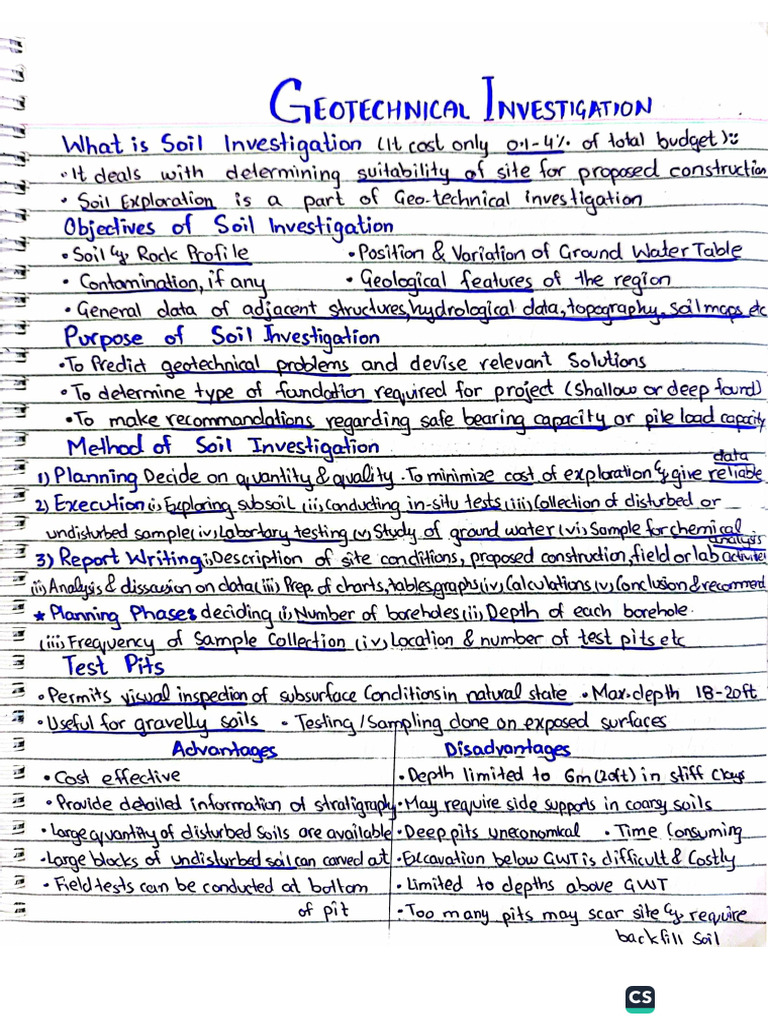 GEOTECHNICAL INVESTIGATION
What is Soil Investigation (It cost only 0.1-4% of total budget)::
• It deals with determining suitability of site for proposed construction
• Soil Exploration is a part of Geo-technical investigation
Objectives of Soil Investigation
• Soil & Rock Profile • Position & Variation of Ground Water Table
• Contamination, if any • Geological features of the region
• General data of adjacent structures, hydrological data, topography, soil maps etc
Purpose of Soil Investigation
• To Predict geotechnical problems and devise relevant Solutions
• To determine type of foundation required for project (Shallow or deep found)
• To make recommandations regarding safe bearing capacity or pile load capacity
Method of Soil Investigation
data
1) Planning Decide on quantity & quality. To minimize cost of exploration & give reliable
2) Execution (i) Exploring subsoil (ii) Conducting in-situ tests (iii) Collection of disturbed or
undisturbed sample (iv) Labortary testing (v) Study of ground water (vi) Sample for chemical
analysis
3) Report Writing i) Description of site conditions, proposed construction, field or lab activities
(ii) Analysis & dissausion on data (iii) Prep. of charts, tables, graphs (iv) Calculations (v) Conclusion & recommend
* Planning Phase: deciding (i) Number of boreholes (ii) Depth of each borehole.
(iii) Frequency of Sample Collection (iv) Location & number of test pits etc
Test Pits
• Permits visual inspection of subsurface Conditions in natural state • Max. depth 18-20ft
• Useful for gravelly soils • Testing/Sampling done on exposed surfaces
Advantages Disadvantages
• Cost effective • Depth limited to 6m (20ft) in stiff Clays
• Provide detailed information of stratigraphy • May require side supports in coarsy soils
• Large quantity of disturbed Soils are available • Deep pits uneconomical • Time Consuming
• Large blocks of undisturbed soil can carved at • Excavation below GWT is difficult & Costly
• Field tests can be conducted at bottom • Limited to depths above GWT
of pit • Too many pits may scar site & require
backfill Soil
CS